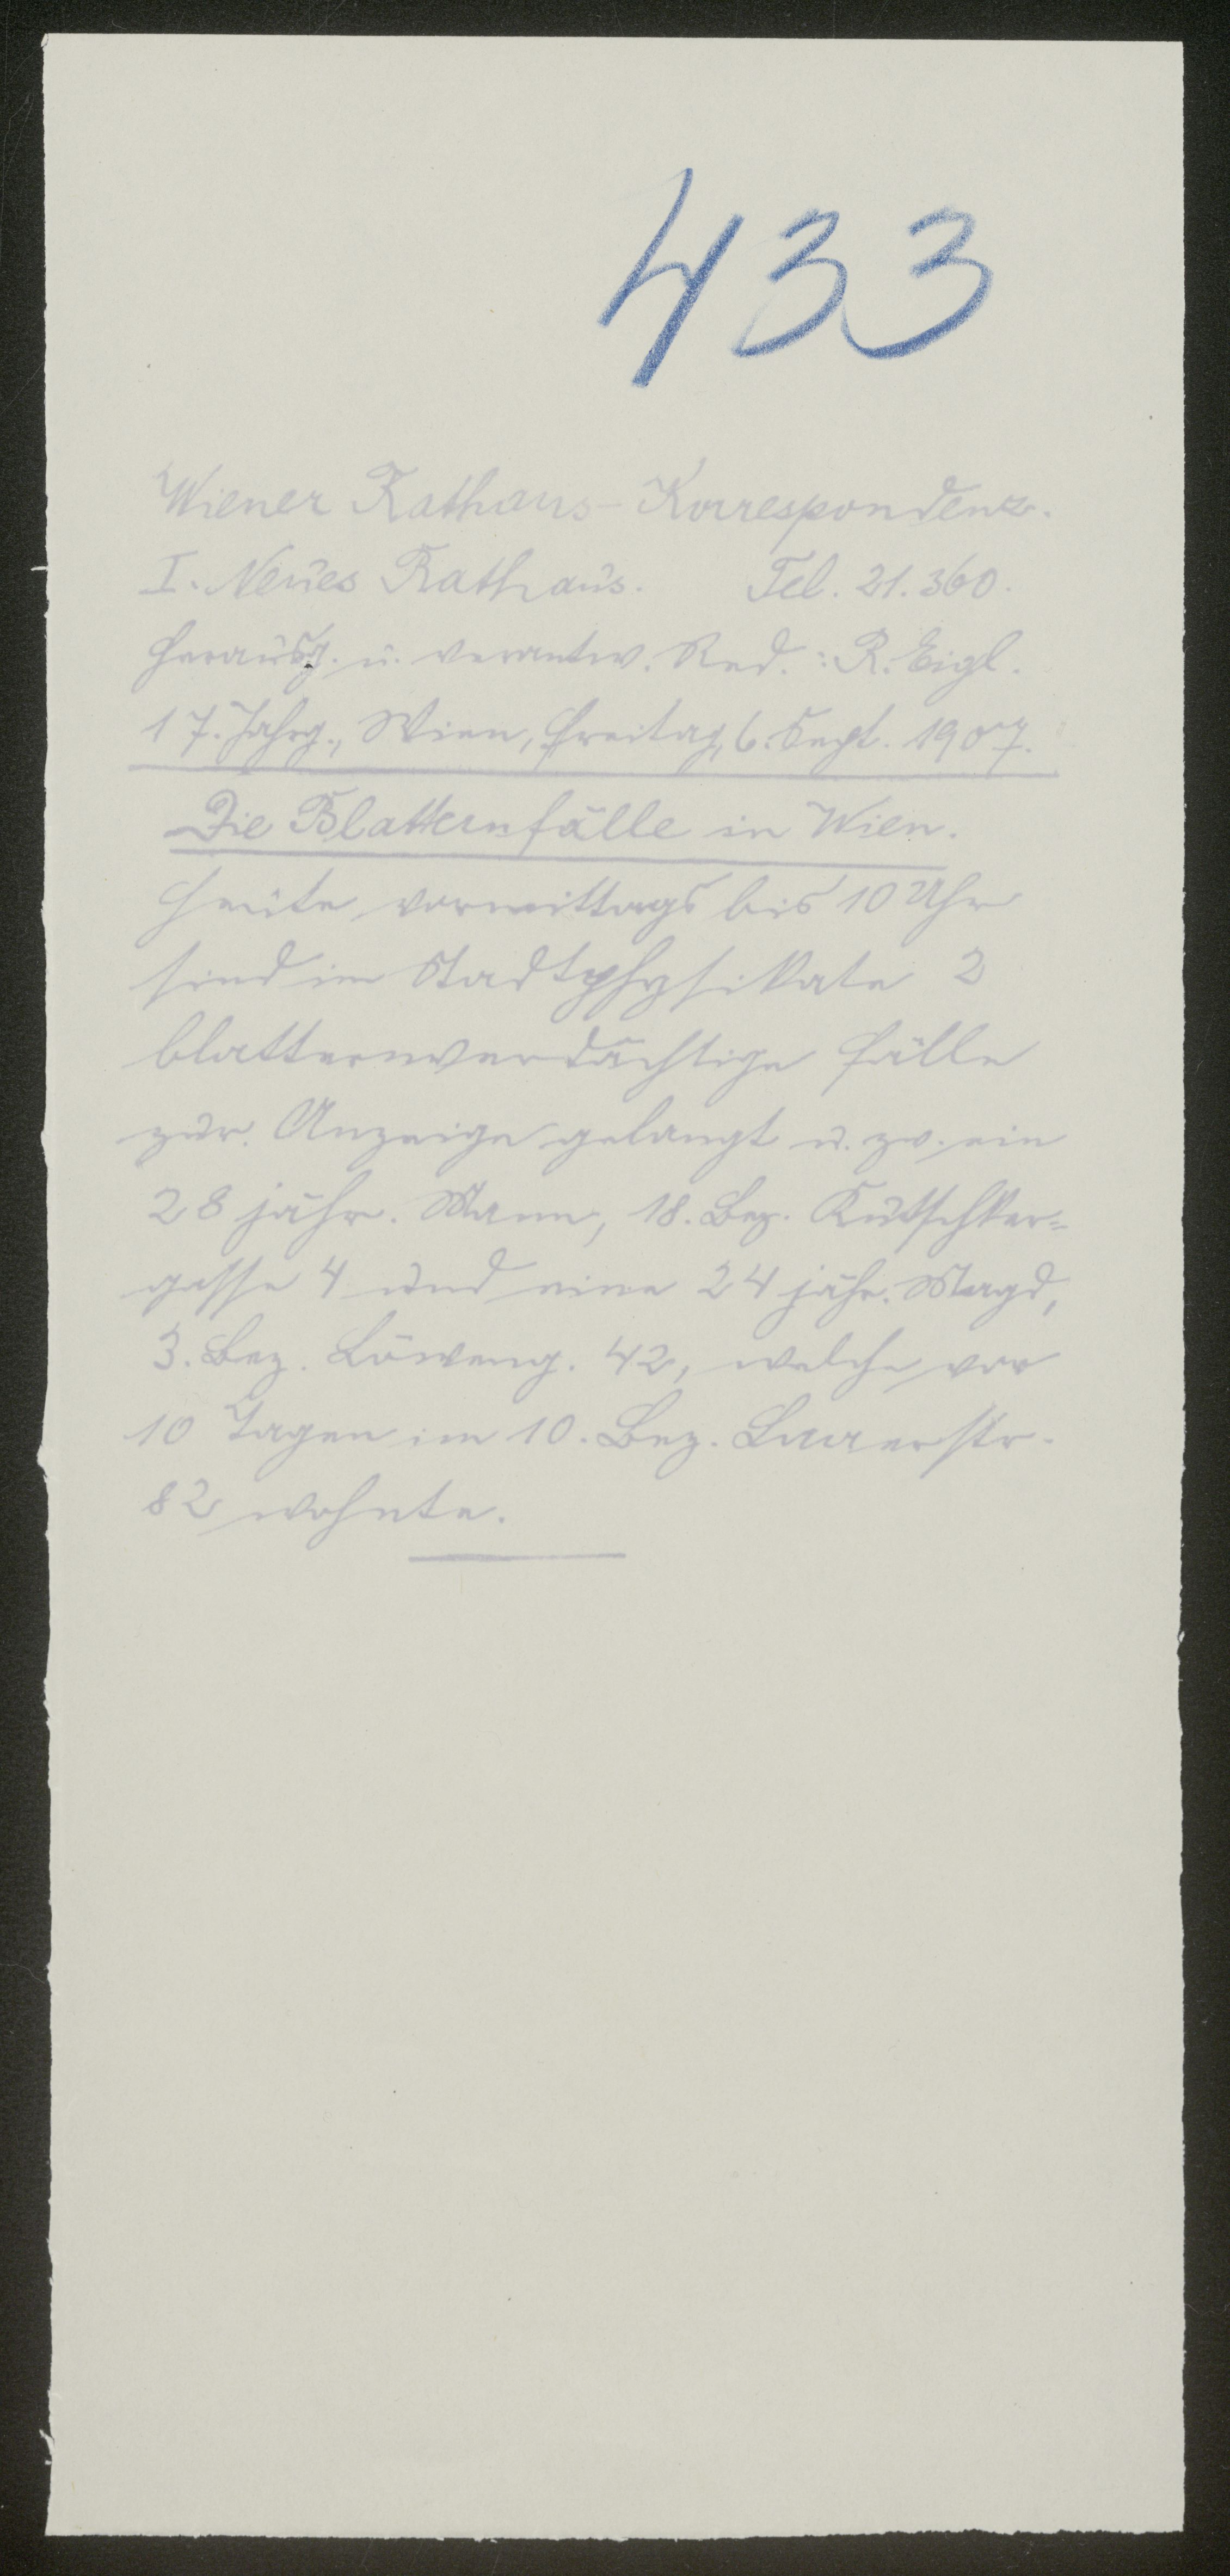 433
Wiener Rathaus-Korrespondenz.
I. Neues Rathaus. Tel. 21.360.
Herausg. u. verantw. Red.: R. Eigl.
17. Jahrg., Wien, Freitag, 6. Sept. 1907.
Die Blatternfälle in Wien.
Heute vormittags bis 10 Uhr
sind im Stadtphysikate 2
blatternverdächtige Fälle
zur Anzeige gelangt u. zw. ein
28 jähr. Mann, 18. Bez. Kutschker-
gasse 4 und eine 24 jähr. Magd,
3. Bez. Löweng. 42, welche vor
10 Tagen im 10. Bez. Laaerstr.
82 wohnte.